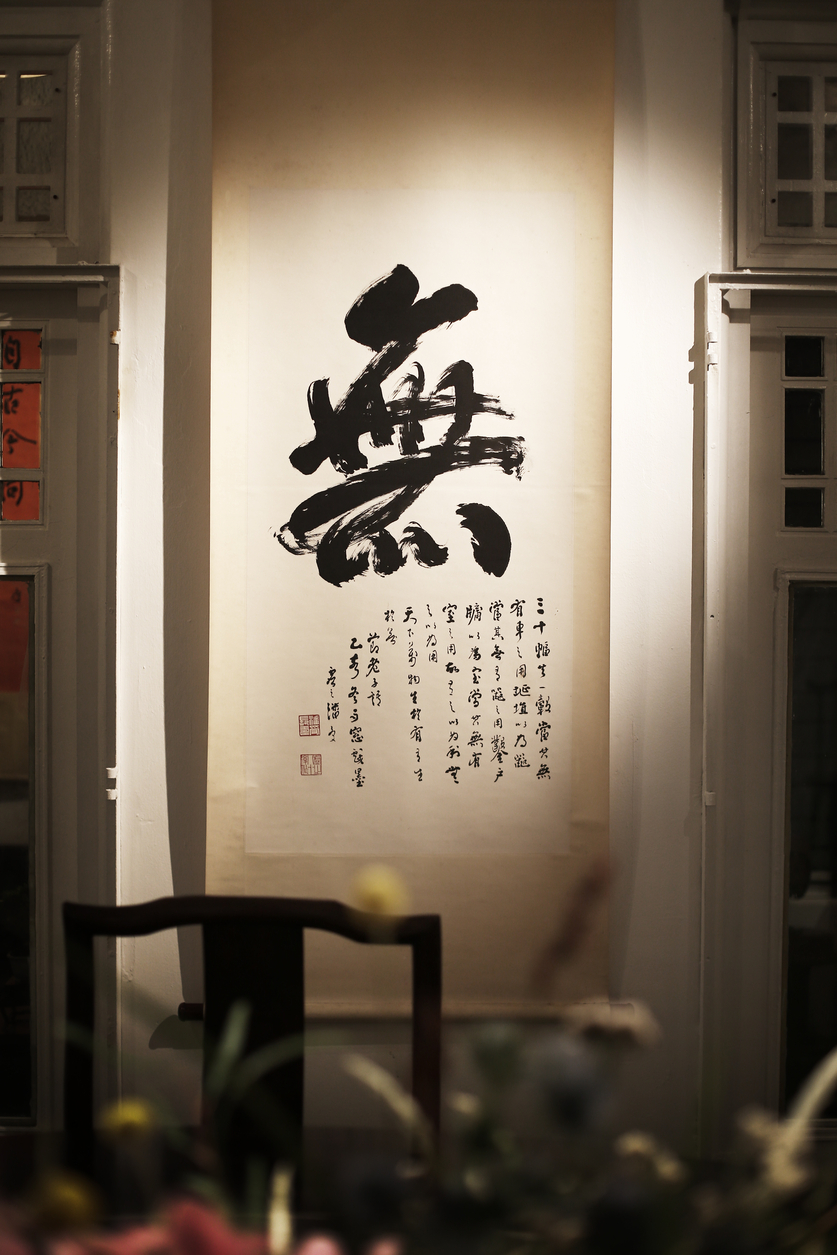 無
三十輻共一轂當其無
有車之用埏埴以為器
當其無有器之用鑿戶
牖以為室當其無有
室之用故有之以為利無
之以為用
天下萬物生於有有生
於無
節老子語
乙亥冬 窗試墨
虛之潘受
自古今